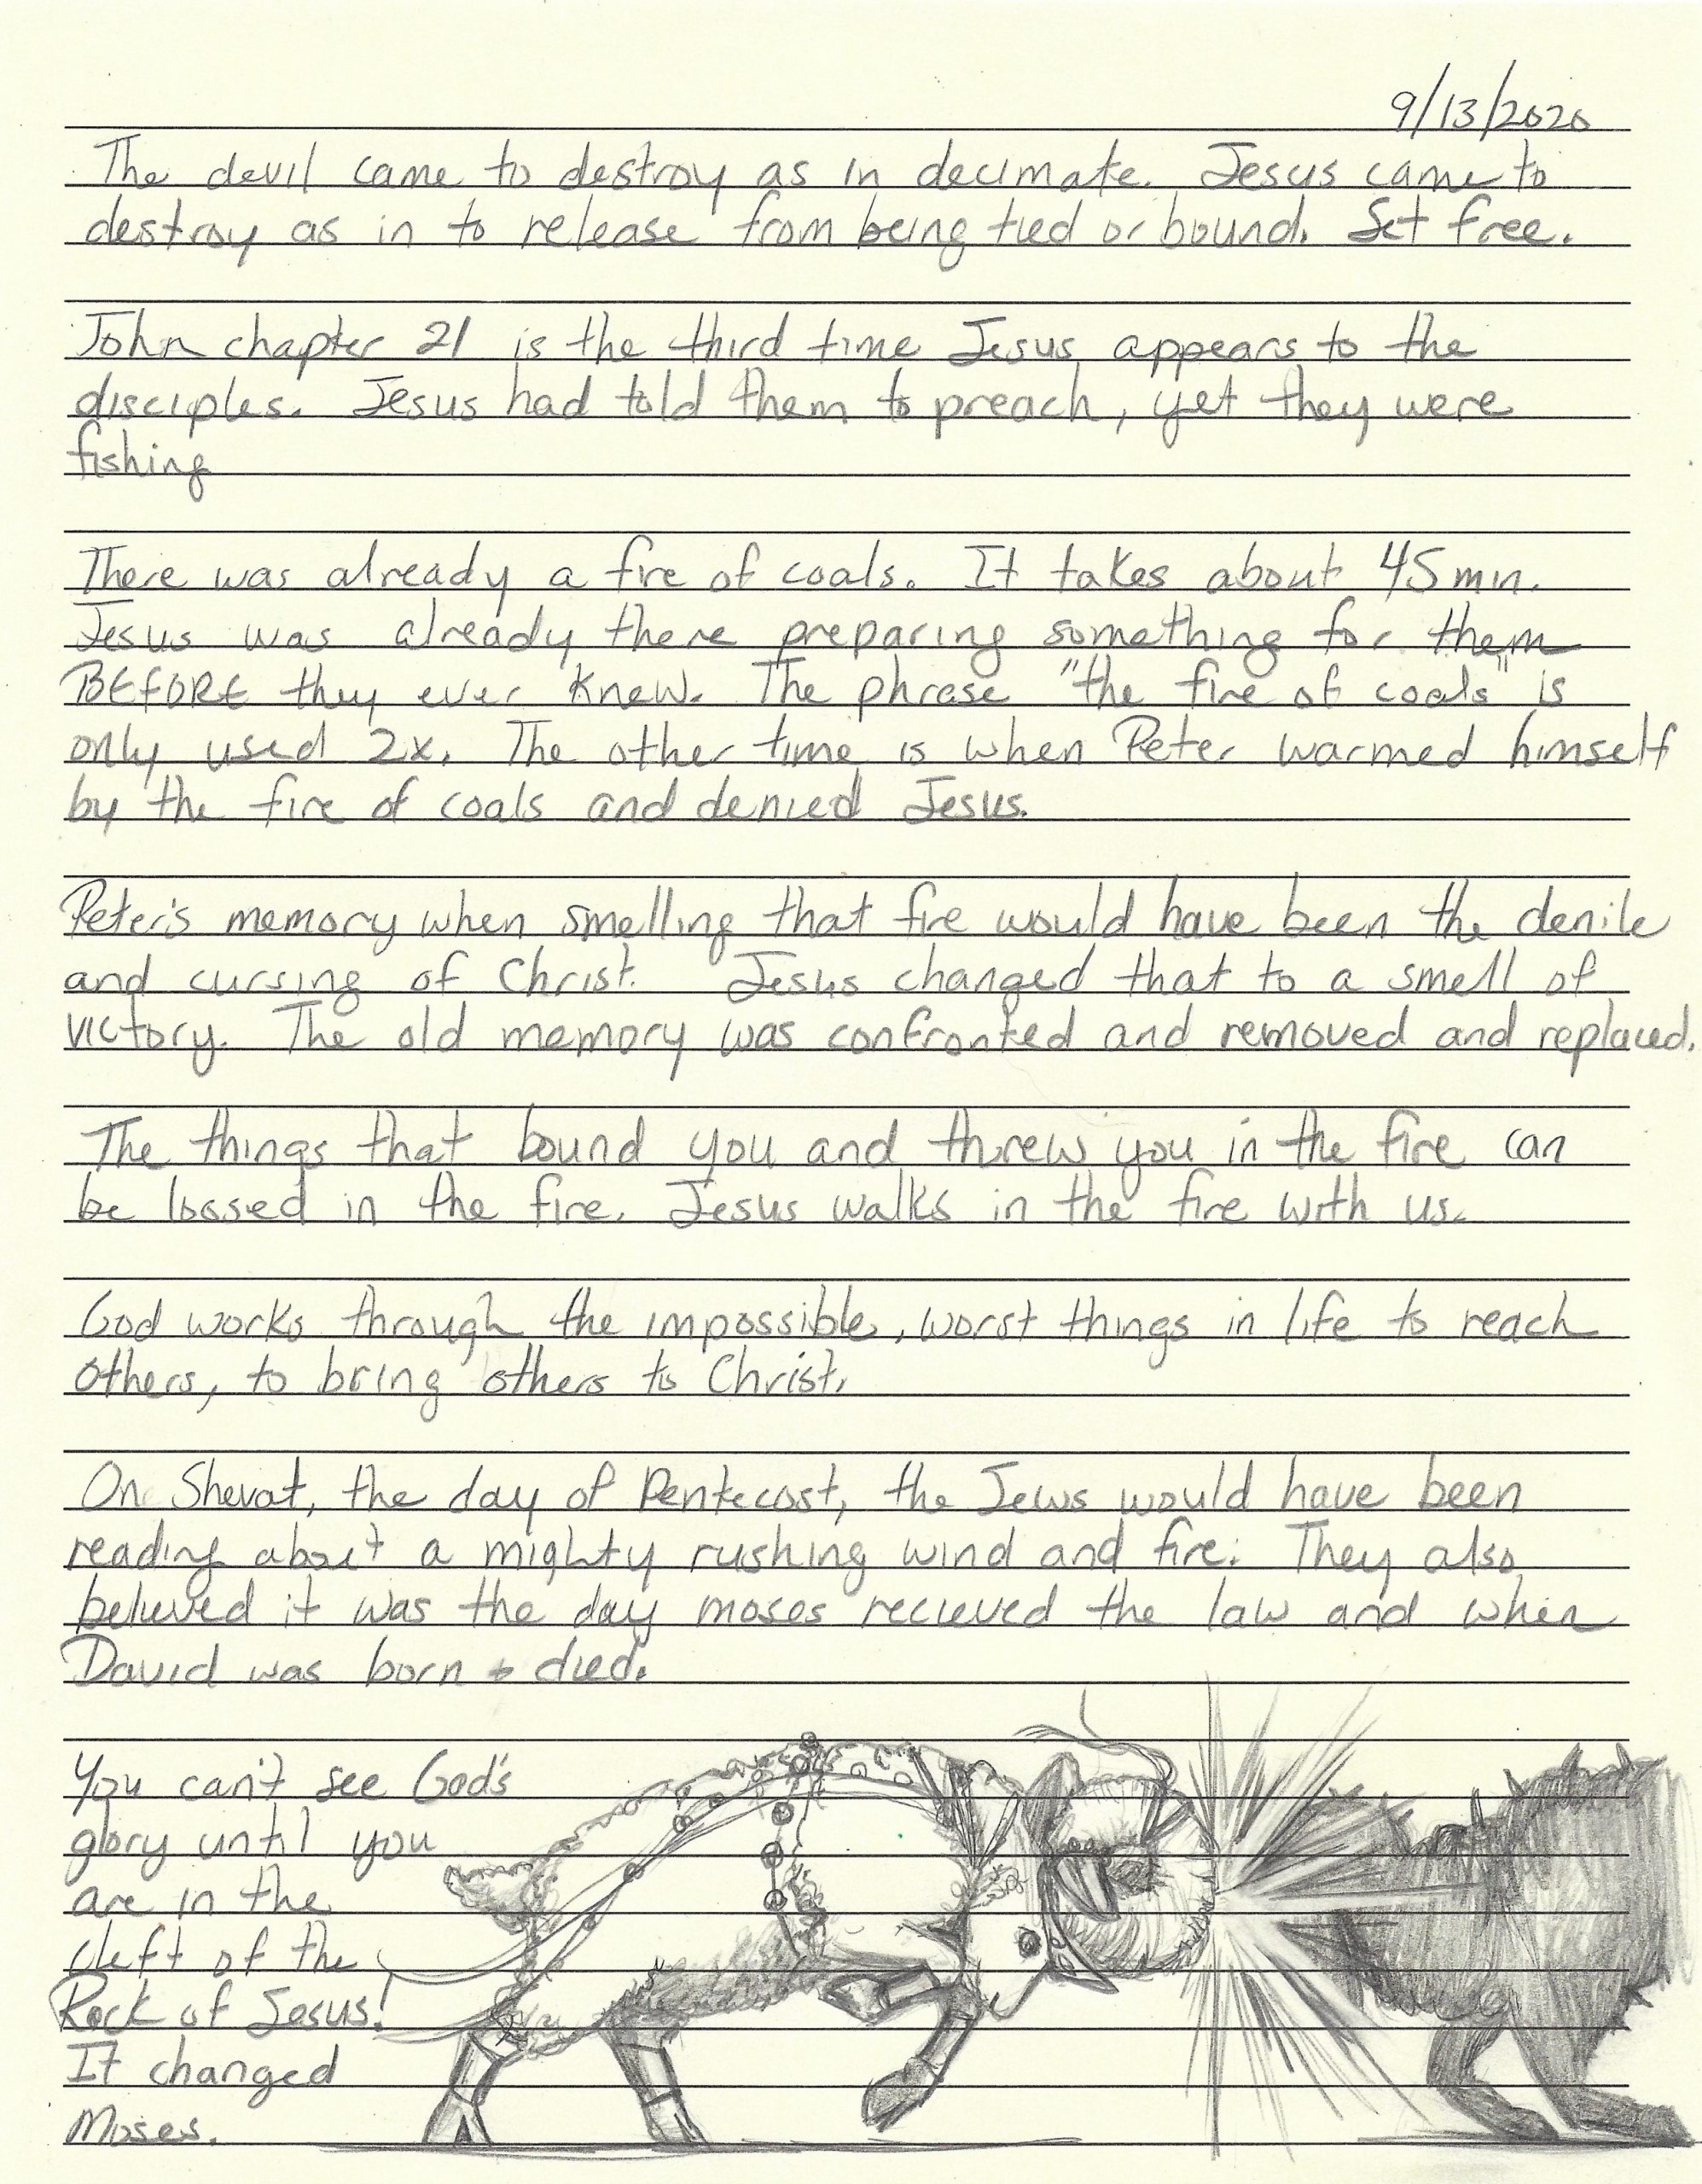 9/13/2020
The devil came to destroy as in decimate. Jesus came to
destroy as in to release from being tied or bound. Set free.
John chapter 21 is the third time Jesus appears to the
disciples. Jesus had told them to preach, yet they were
fishing
There was already a fire of coals. It takes about 45 min.
Jesus was already there preparing something for them
BEFORE they ever knew. The phrase "the fire of coals" is
only used 2x. The other time is when Peter warmed himself
by the fire of coals and denied Jesus.
Peter's memory when smelling that fire would have been the denile
and cursing of Christ. Jesus changed that to a smell of
victory. The old memory was confronted and removed and replaced.
The things that bound you and threw you in the fire can
be loosed in the fire. Jesus walks in the fire with us.
God works through the impossible, worst things in life to reach
others, to bring others to Christ.
On Shevat, the day of Pentecost, the Jews would have been
reading about a mighty rushing wind and fire. They also
believed it was the day moses recieved the law and when
David was born + died.
You can't see God's
glory until you
are in the
cleft of the
Rock of Jesus!
It changed
Moses.